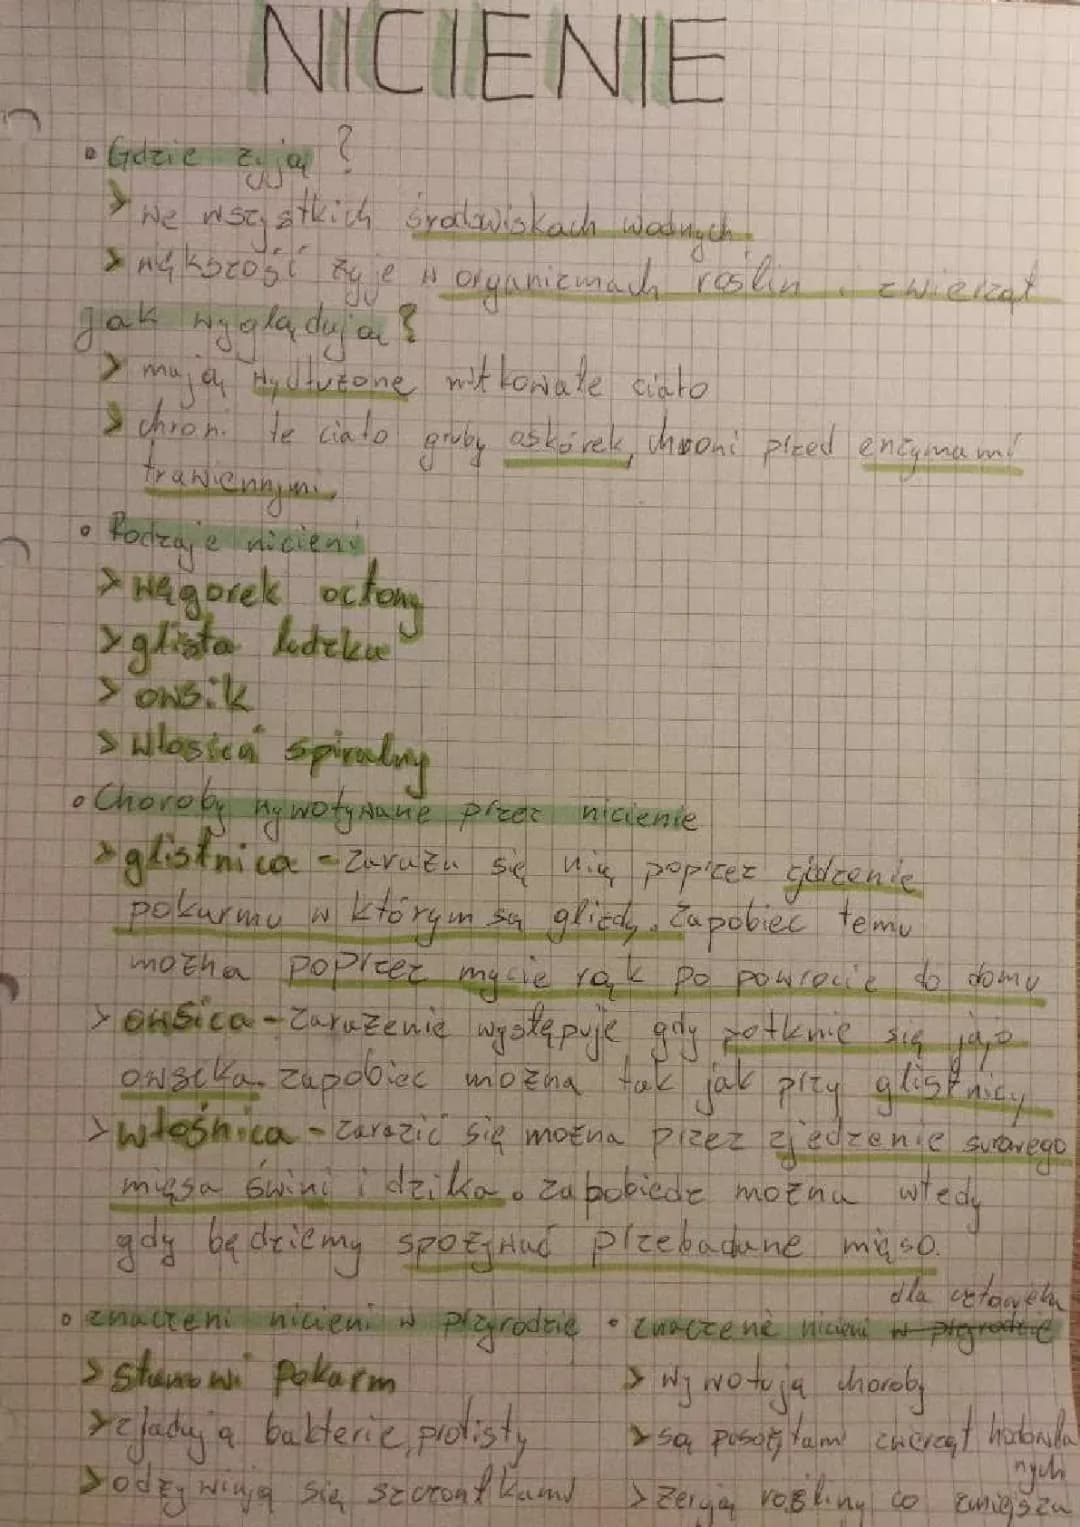 NICIENIE
• Gdzie żyją?
> we wszystkich środowiskach wodnych
> większość żyje w organizmach roślin i zwierząt
Jak wyglądują?
> mają wydłużone nitkowate ciało
> chroni te ciało gruby oskórek, chroni przed enzymami
trawiennymi.
• Rodzaje nicieni
> węgorek octowy
> glista ludzka
> owsik
> włosień spiralny
• Choroby wywoływane przez nicienie
> glistnica - zaraża się nią poprzez jedzenie
pokarmu w którym są glisty. Zapobiec temu
można poprzez mycie rąk po powrocie do domu
> owsica - zarażenie występuje gdy połknie się jajo
owsika. zapobiec można tak jak przy glistnicy
> włośnica - zarazić się można przez zjedzenie surowego
mięsa świni i dzika. zapobiedz można wtedy
gdy będziemy spożywać przebadane mięso.
• znaczeni nicieni w przyrodzie
> stanowi pokarm
> zjadują bakterie, protisty
> odżywiają się szczątkami
• znaczenie nicieni w przyrodzie dla człowieka
> wywołują choroby
> są pasożytami zwierząt hodowlanych
> żerują rośliny co zmiejsza